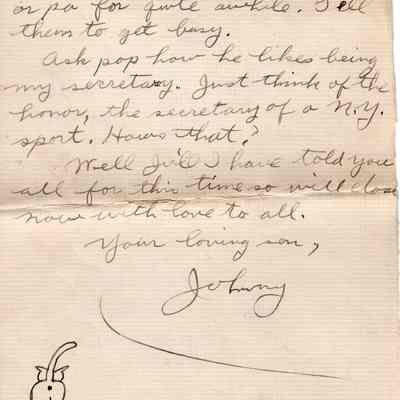 or pa for quite awhile. Tell
them to get busy.
Ask pop how he likes being
my secretary. Just think of the
honor, the secretary of a N.Y.
sport. Hows that?
Well I've I have told you
all for this time so will close
now with love to all.
Your loving son,
Johnny